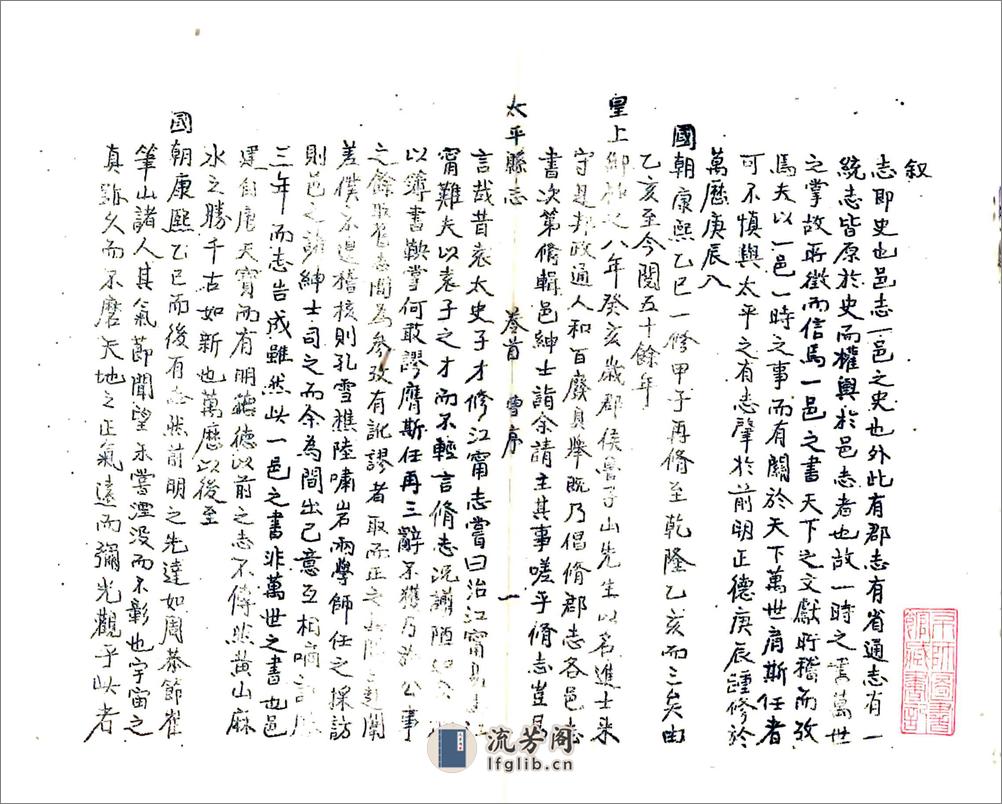 叙
志即史也邑志一邑之史也外此有郡志有省通志有一
統志皆原於史而權輿於邑志者也故一時之書萬世
之掌故所徵而信焉一邑之書天下之文獻所稽而攷
焉夫以一邑一時之事而有關於天下萬世肩斯任者
可不慎與太平之有志肇於前明正德庚辰踵修於
萬歷庚辰入
國朝康熙乙巳一修甲子再脩至乾隆乙亥而三矣由
乙亥至今閱五十餘年
皇上御極之八年癸亥歲郡侯魯子山先生以名進士來
守是邦政通人和百廢具舉既乃倡脩郡志各邑志
書次第脩輯邑紳士詣余請主其事嗟乎脩志豈易
太平縣志 卷首 曹序 一
言哉昔袁太史子才修江甯志嘗曰治江甯易志江
甯難夫以袁子之才而不輕言脩志況譾陋如
以簿書鞅掌何敢謬膺斯任再三辭不獲乃於公事
之餘取舊志閱為參攷有訛謬者取而正之
差僕不遑稽核則孔雪樵陸嘯岩兩學師任之採訪
則邑之諸紳士司之而余為間出己意互相商訂
三年而志告成雖然此一邑之書非萬世之書也邑
建自唐天寶而有明懿德以前之志不傳然黃山麻
水之勝千古如新也萬歷以後至
國朝康熙乙巳而後有志然前明之先達如周恭節崔
筆山諸人其氣節聞望未嘗湮没而不彰也宇宙之
真弥久而不磨天地之正氣遠而彌光觀乎此者
流芳阁
lfglib.cn